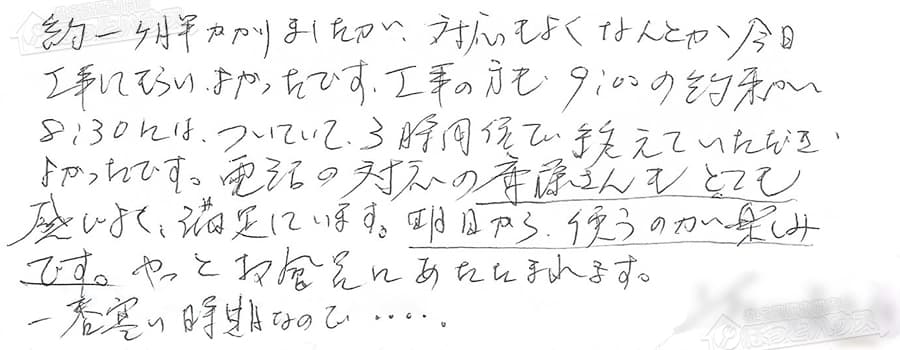 約一ヶ月半かかりましたが、対応もよくなんとか今日
工事にもらい、よかったです。工事の方も9:00の約束が
8:30には、ついていて、3時間位で終えていただき、
よかったです。電話の対応の斉藤さんもとても
感じよく、満足しています。明日から、使うのが楽しみ
です。やっとお風呂にあたたまれます。
一番寒い時期なので‥‥。